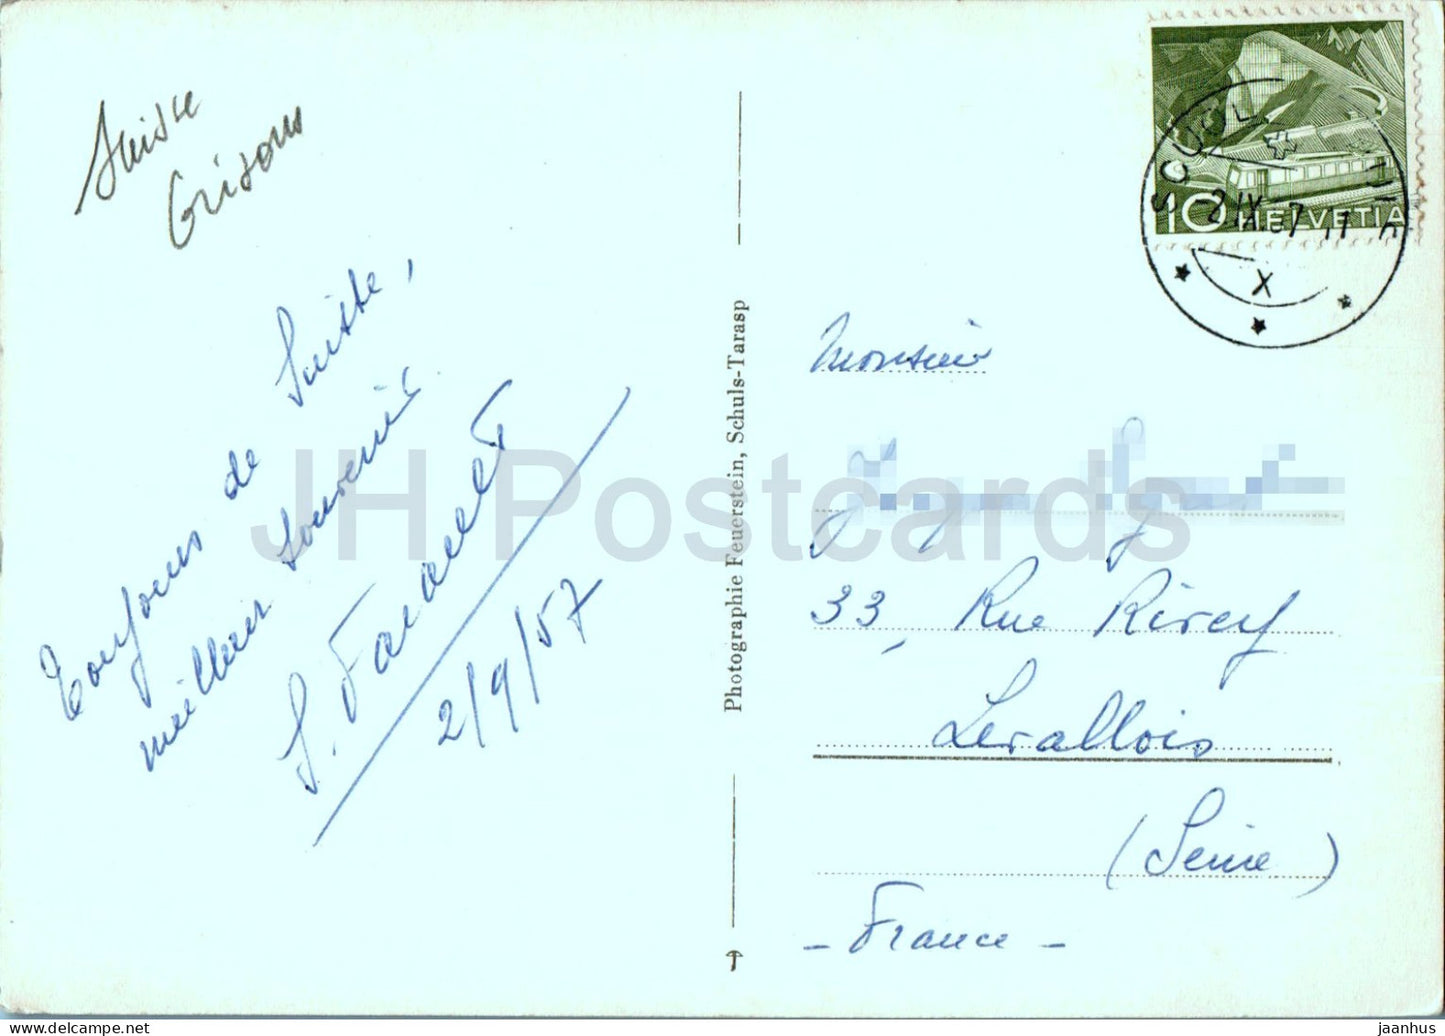 Suisse
Grisons
Toujours de Suisse,
meilleurs souvenirs.
2/9/57
Photographie Feuerstein, Schuls-Tarasp
10 HELVETIA
SCUOL
2.IX.57
X
Monsieur
33, Rue Rivay
Levallois
(Seine)
- France -
JH Postcards
jaanhus - delcampe.net